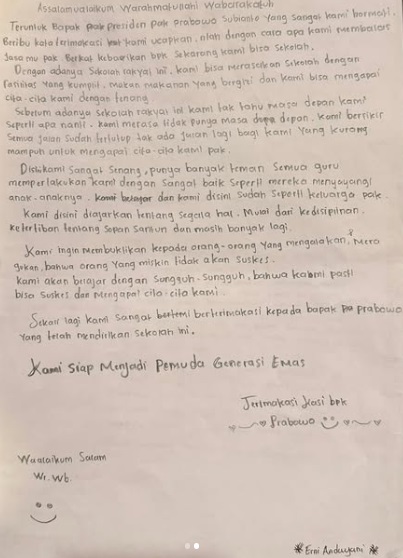 Assalamualaikum Warahmatullahi Wabarakatuh
Teruntuk Bapak Presiden Prabowo Subianto Yang Sangat kami hormati.
Beribu kata terimakasi kami ucapkan, ntah dengan cara apa kami membalas
Jasa mu pak Berkat kebaikan bpk Sekarang kami bisa Sekolah.
Dengan adanya Sekolah rakyat ini. kami bisa merasakan Sekolah dengan
Fasilitas Yang kumplit, makan makanan Yang bergizi dan kami bisa mengapai
cita-cita kami dengan tenang
Sebelum adanya Sekolah rakyat ini kami tak tahu masa depan kami
Seperti apa nanti. kami merasa tidak punya masa depan. kami berfikir
Semua jalan Sudah tertutup tak ada Jalan lagi bagi kami Yang kurang
mampuh untuk mengapai cita-cita kami pak.
Disini kami Sangat Senang, punya banyak teman Semua guru
memperlakukan kami dengan Sangat baik Seperti mereka menyayangi
anak-anaknya. kami belajar dan kami disini Sudah Seperti keluarga pak.
Kami disini diajarkan tentang Segala hal. Mulai dari kedisiplinan.
ketertiban tentang Sopan Santun dan masih banyak lagi.
Kami Ingin Membuktikan kepada orang-orang Yang mengatakan,
bahwa orang Yang miskin tidak akan Sukses.
kami akan belajar dengan Sungguh-Sungguh, bahwa kami pasti
bisa Sukses dan Mengapai cita-cita kami.
Sekali lagi kami Sangat berterimakasi kepada bapak Prabowo
Yang telah mendirikan Sekolah ini.
Kami Siap Menjadi Pemuda Generasi Emas
Terimakasi kasi bpk
Prabowo
Waalaikum Salam
Wr. Wb.
Erni Andayani